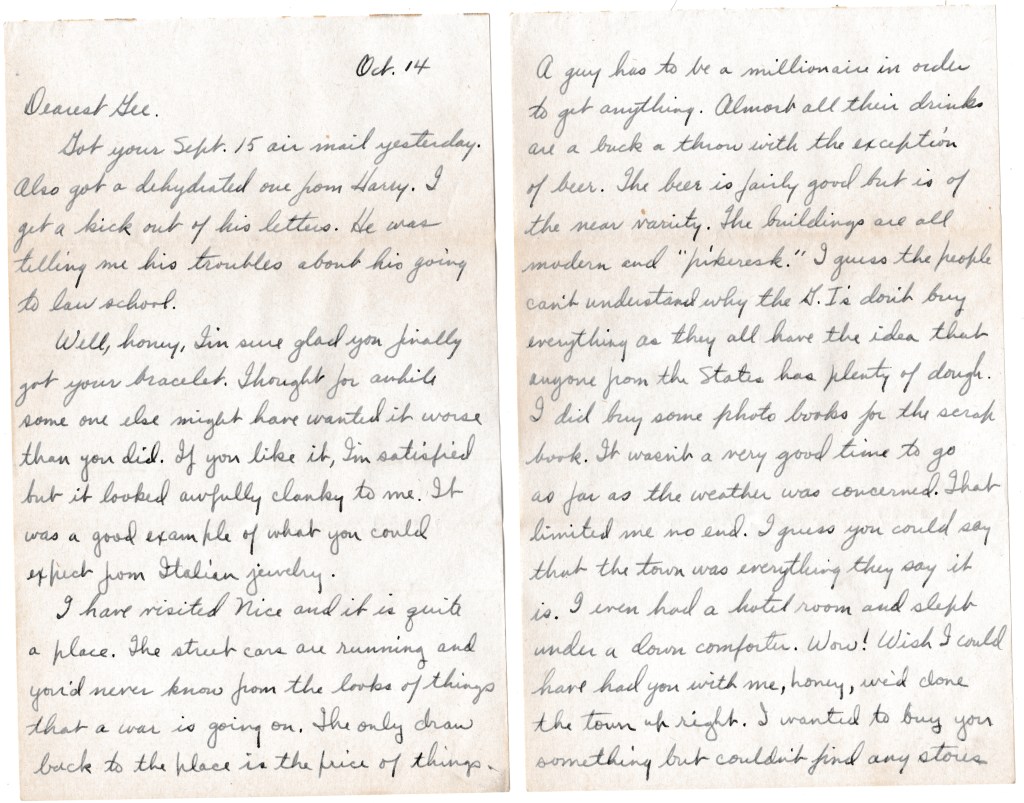 Oct. 14
Dearest Gee.
Got your Sept. 15 air mail yesterday.
Also got a dehydrated one from Harry. I
get a kick out of his letters. He was
telling me his troubles about his going
to law school.
Well, honey, I'm sure glad you finally
got your bracelet. Thought for awhile
some one else might have wanted it worse
than you did. If you like it, I'm satisfied
but it looked awfully clanky to me. It
was a good example of what you could
expect from Italian jewelry.
I have visited Nice and it is quite
a place. The street cars are running and
you'd never know from the looks of things
that a war is going on. The only draw
back to the place is the price of things.
A guy has to be a millionaire in order
to get anything. Almost all their drinks
are a buck a throw with the exception
of beer. The beer is fairly good but is of
the near varity. The buildings are all
modern and "pikeresk." I guess the people
can't understand why the G.I's don't buy
everything as they all have the idea that
anyone from the States has plenty of dough.
I did buy some photo books for the scrap
book. It wasn't a very good time to go
as far as the weather was concerned. That
limited me no end. I guess you could say
that the town was everything they say it
is. I even had a hotel room and slept
under a down comforter. Wow! Wish I could
have had you with me, honey, we'd done
the town up right. I wanted to buy you
something but couldn't find any stores